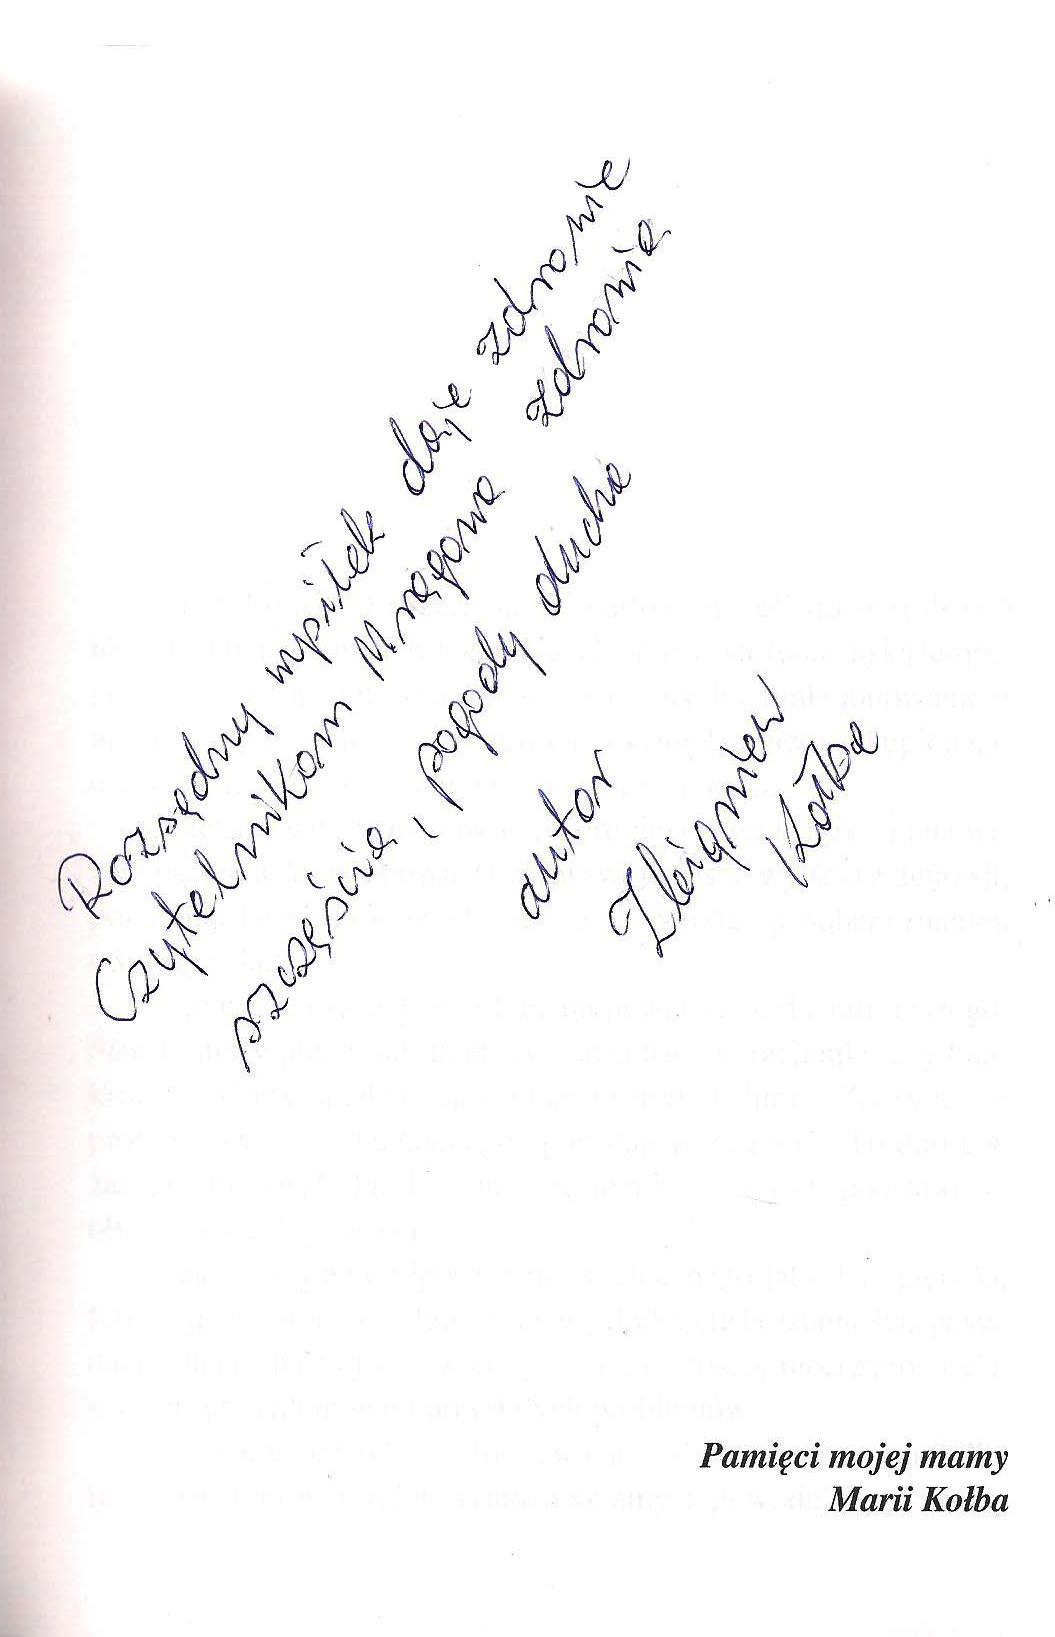 Rozsądny wysiłek daje zdrowie
Czytelnikom Mrągowa zdrowia
szczęścia, pogody ducha
autor
Zbigniew
Kołba
Pamięci mojej mamy
Marii Kołba